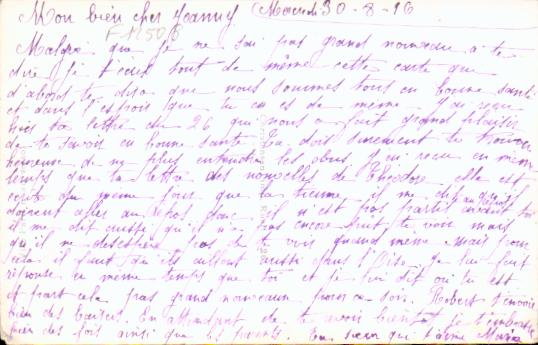 Mon bien cher Jeanny Mercredi 30-8-16
F 1250
Malgré que je ne sai pas grand nouveau a te
dire je t'écris tout de même cette carte que
d'abord te dira que nous sommes tous en bonne santé
et dans l'espoir que tu es de meme J'ai reçu
hier ta lettre du 26 qui nous a fait grand plaisir
de te savoir en bonne santé Ça doit surement te
heureuse de ne plus entendre les obus J'ai recu en meme
temps que ta lettre des nouvelles de Theodore elle est
écrite du meme jour que la tienne il me dit
aller au repos donc il n'est pas parti avant toi
il me dit aussi qu'il n'a pas encore put te voir mais
qu'il ne desespère pas de te voir quand meme mais pour
cela il faut qu'ils aussi dans l'Oise je lui fait
réponse en meme temps que toi et je lui dit ou tu est
et part cela pas grand nouveau pour ce soir. Robert t'envoie
bien des baisers. En attendant de te avoir bientot je t'embrasse
bien des fois ainsi que les parents. Ta sœur qui t'aime